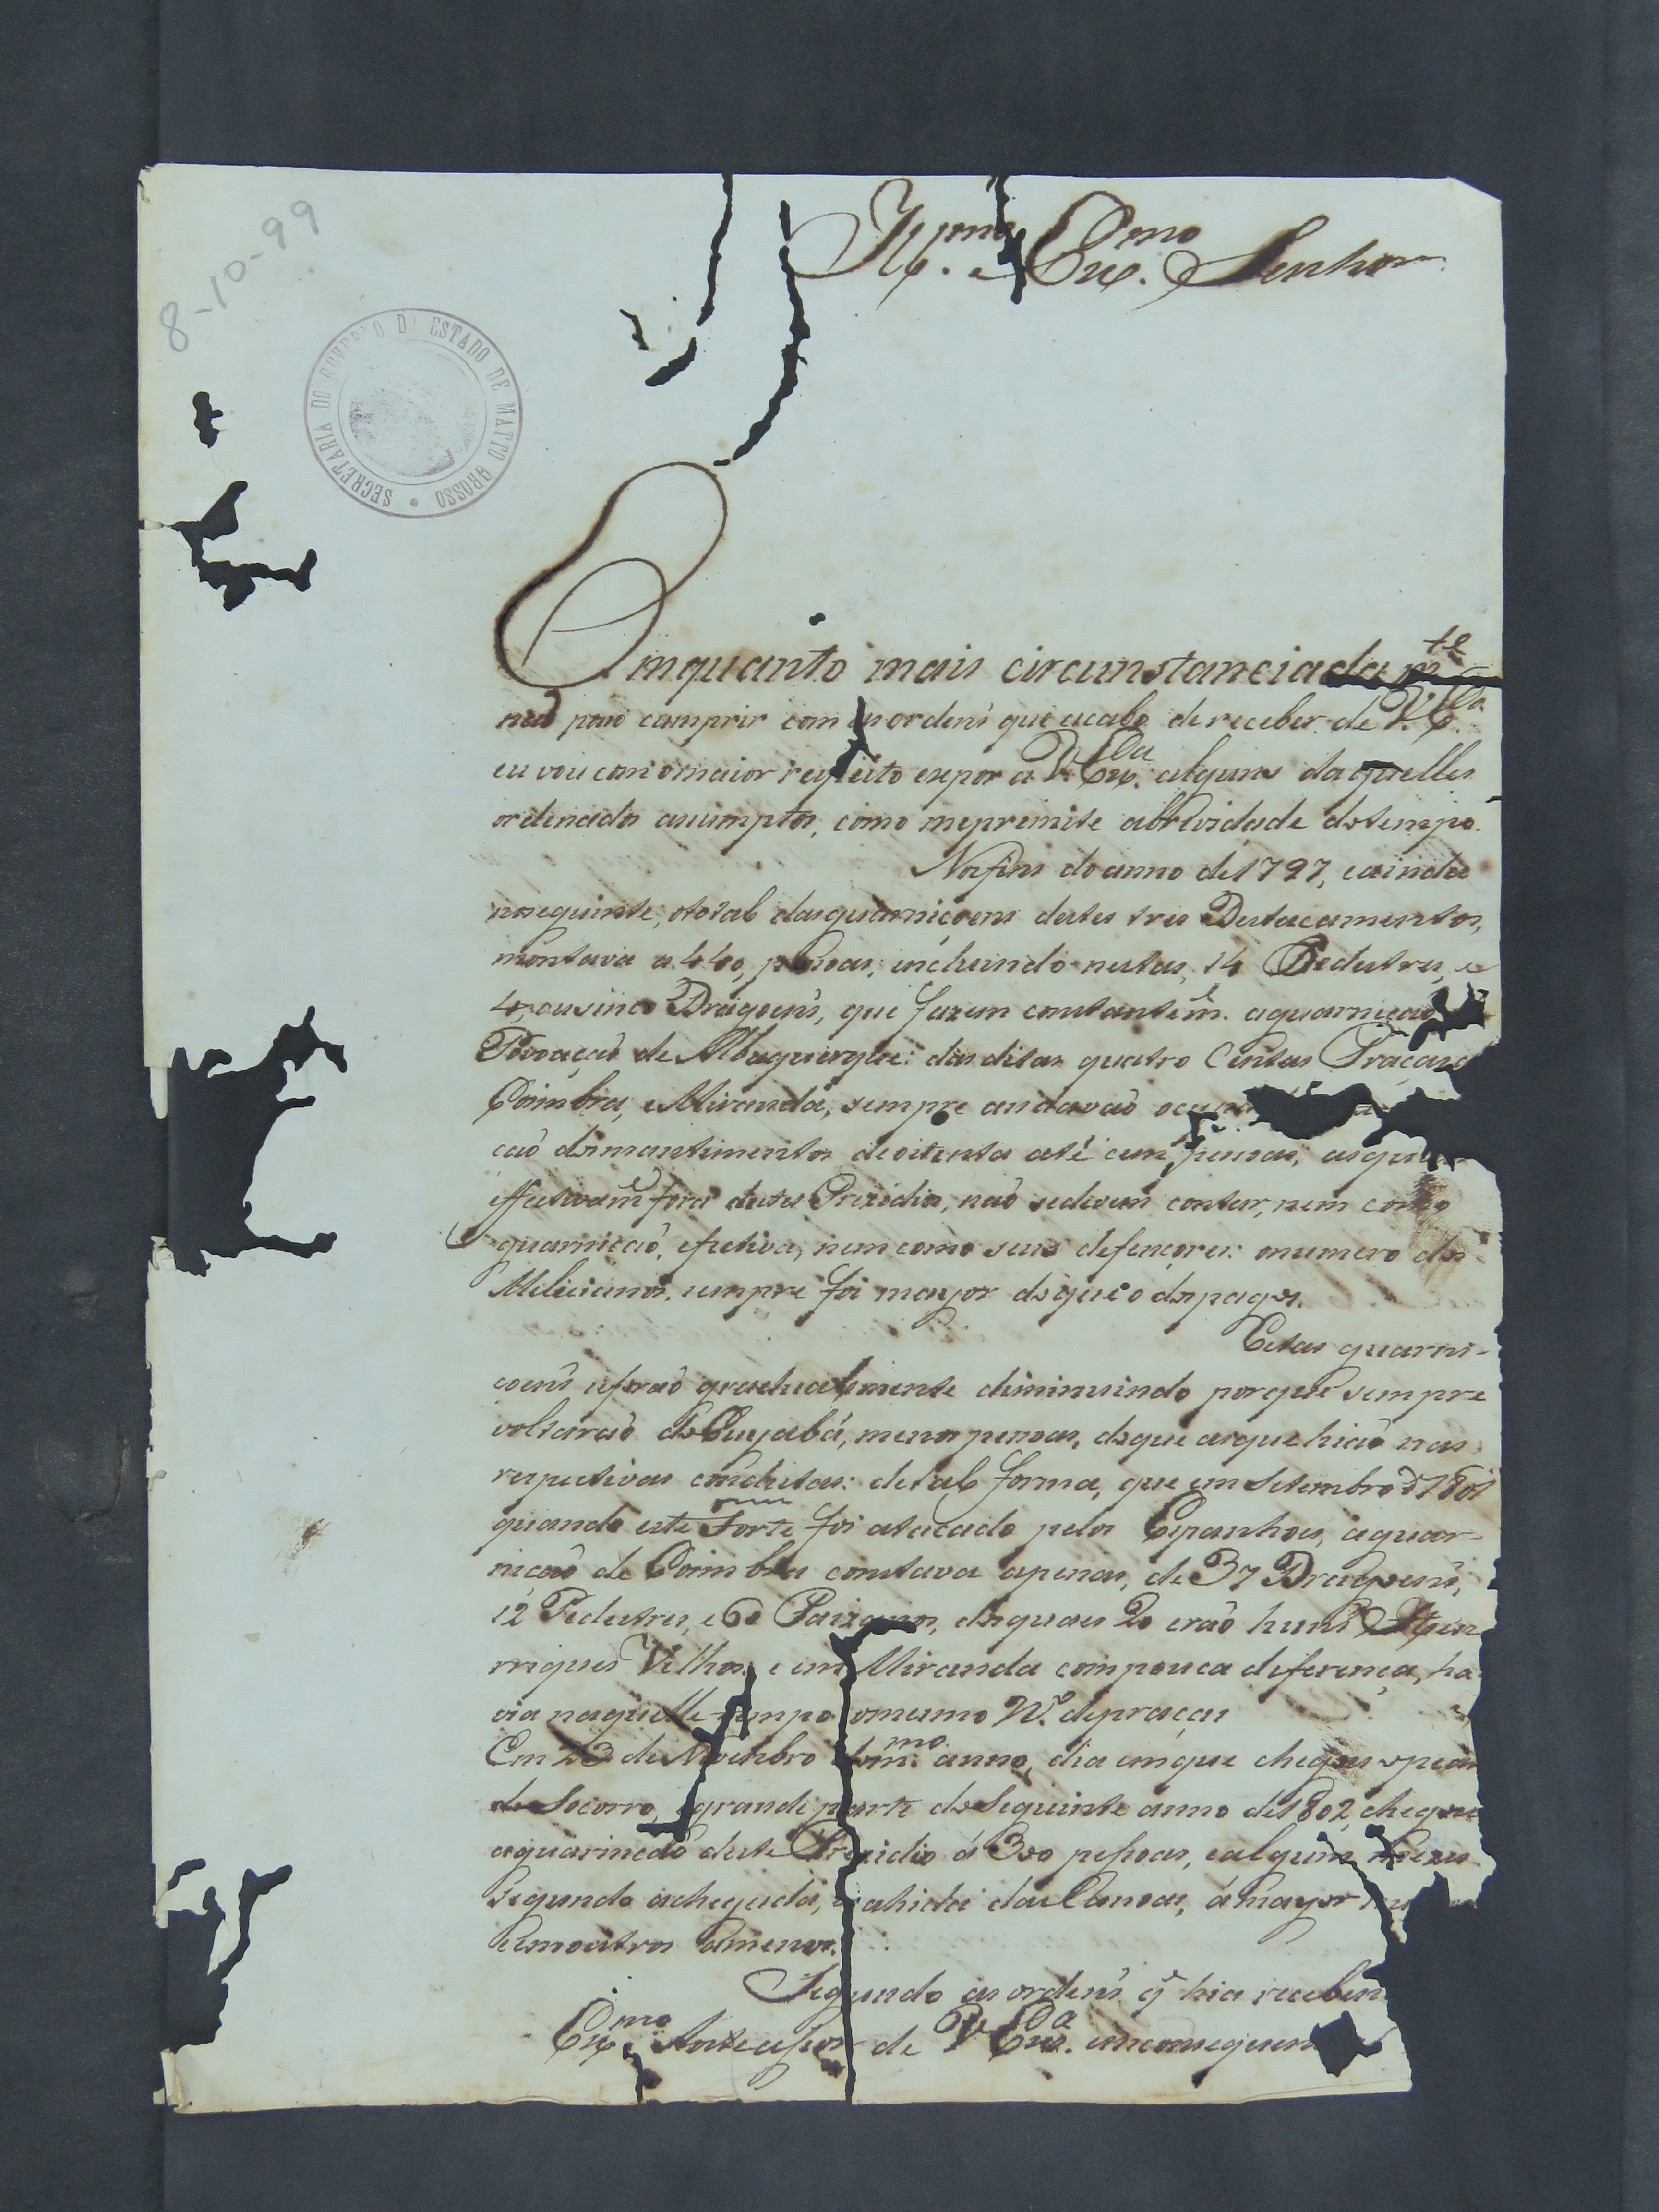 8-10-99
SECRETARIA DO GOVERNO DO ESTADO DE MATTO GROSSO
Ill.mo e Ex.mo Senhor
Emquanto mais circunstanciadam.te
naõ poso cumprir com as ordens que acabo de receber de V. Ex.a
eu vou com o maior respeito expor a V. Ex.a alguns daquelles
ordenados asumptos, como mepremite abrevidade dotempo.
Nofim do anno de 1797, eainda
noseguinte, ototal dasguarniçoens destes tres Destacamentos,
montava a 440, pesoas; incluindo nestas, 14 Pedestres, e
4, ousinco Dragoens, que fazem constantem.e aguarniçaõ
Povoaçaõ de Albuquerque: das ditas quatro Centas Praças
Coimbra, e Miranda, sempre andavaõ
çaõ dosmantimentos deoitenta até cem pesoas, asque
effectivam.e fora destes Prezidios, naõ sedevem contar, nem como
guarniçaõ, efectiva, nem como seus defençores: onumero dos
Milicianos, sempre foi mayor doque o dospagos.
Estas guarni-
çoens seforaõ gradualmente diminuindo porque sempre
voltaraõ do Cuyabá, menos pesoas, doque asque hiaõ nas
respectivas conductas: detal forma, que em Setembro d 1801
quando este Forte foi atacado pelos Espanhoes, aguar-
niçaõ de Coimbra constava apenas, de 37 Dragoens,
12 Pedestres, e 60 Paizanos, dosquaes 20 eraõ huns Hen
rriques Velhos, e em Miranda com pouca diferença, ha
via naquelle tempo omesmo N.o depraças
Em 23 de Novembro dom.mo anno, dia emque chegou
do Socorro, egrande parte do Seguinte anno de 1802, chegou
aguarniçaõ deste Prezidio á 300 pessoas, ealguns mezes
Segundo achegada, e sahida das Canoas, á mayor
eemoutros amenor.
Segundo as ordens q̃ hia receben
Ex.mo Antecessor de V. Ex.a